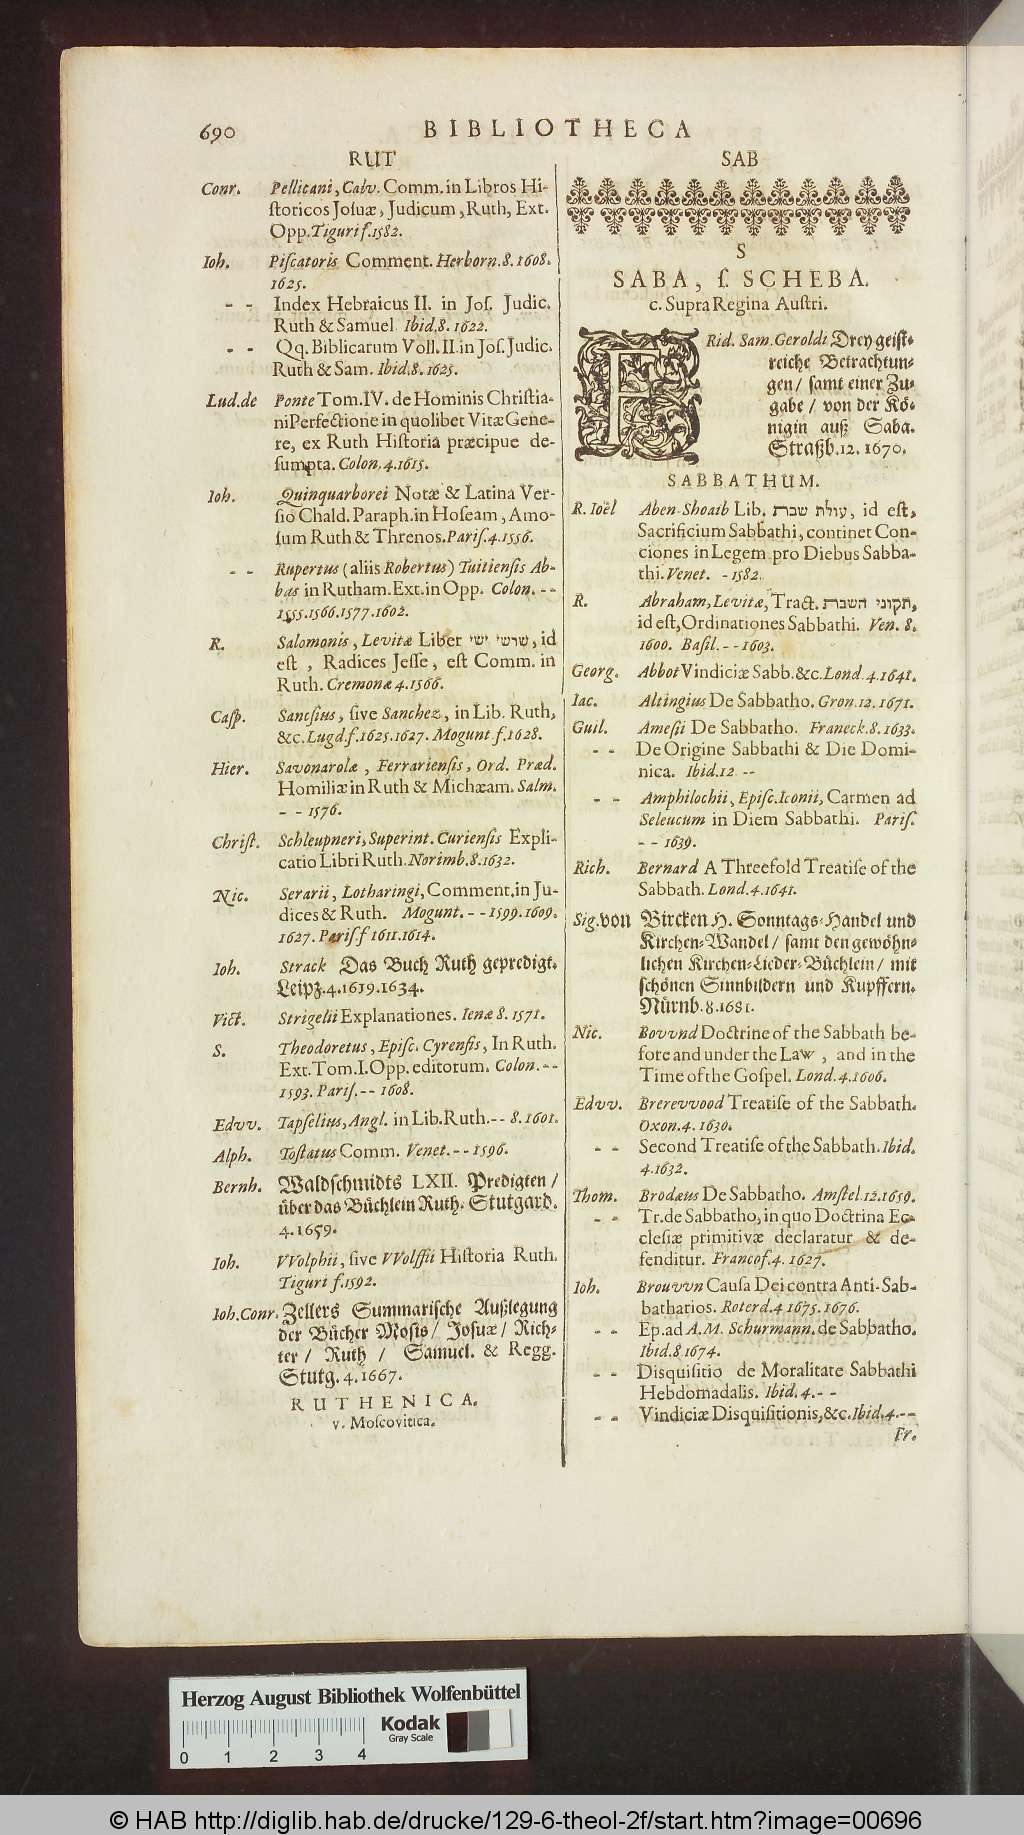 690
BIBLIOTHECA
RUT
Conr. Pellicani, Calv. Comm. in Libros Hi-
ſtoricos Joſuæ, Judicum, Ruth, Ext.
Opp. Tiguri f. 1582.
Ioh. Piſcatoris Comment. Herborn. 8. 1608.
1625.
- - Index Hebraicus II. in Joſ. Judic.
Ruth & Samuel Ibid. 8. 1622.
- - Qq. Biblicarum Voll. II. in Joſ. Judic.
Ruth & Sam. Ibid. 8. 1625.
Lud. de Ponte Tom. IV. de Hominis Chriſtia-
ni Perfectione in quolibet Vitæ Gene-
re, ex Ruth Hiſtoria præcipue de-
ſumpta. Colon. 4. 1615.
Ioh. Quinquarborei Notæ & Latina Ver-
ſio Chald. Paraph. in Hoſeam, Amo-
ſum Ruth & Threnos. Pariſ. 4. 1556.
- - Rupertus (aliis Robertus) Tuitienſis Ab-
bas in Rutham. Ext. in Opp. Colon. - -
1555. 1566. 1577. 1602.
R. Salomonis, Levitæ Liber שרשי ישי, id
eſt, Radices Jeſſe, eſt Comm. in
Ruth. Cremonæ 4. 1566.
Caſp. Sancſius, ſive Sanchez, in Lib. Ruth,
&c. Lugd. f. 1625. 1627. Mogunt. f. 1628.
Hier. Savonarolæ, Ferrarienſis, Ord. Præd.
Homiliæ in Ruth & Michæam. Salm.
- - 1576.
Chriſt. Schleupneri, Superint. Curienſis Expli-
catio Libri Ruth. Norimb. 8. 1632.
Nic. Serarii, Lotharingi, Comment. in Ju-
dices & Ruth. Mogunt. - - 1599. 1609.
1627. Pariſ. f 1611. 1614.
Ioh. Strack Das Buch Ruth gepredigt.
Leipz. 4. 1619. 1634.
Vict. Strigelii Explanationes. Ienæ 8. 1571.
S. Theodoretus, Epiſc. Cyrenſis, In Ruth.
Ext. Tom. I. Opp. editorum. Colon. - -
1593. Pariſ. - - 1608.
Edvv. Tapſelius, Angl. in Lib. Ruth. - - 8. 1601.
Alph. Toſtatus Comm. Venet. - - 1596.
Bernh. Waldſchmidts LXII. Predigten /
über das Büchlein Ruth. Stutgard.
4. 1659.
Ioh. VVolphii, ſive VVolffii Hiſtoria Ruth.
Tiguri f. 1592.
Ioh. Conr. Zellers Summariſche Außlegung
der Bücher Moſis / Joſuæ / Rich-
ter / Ruth / Samuel. & Regg.
Stutg. 4. 1667.
RUTHENICA.
v. Moſcovitica.
SAB
S
SABA, ſ. SCHEBA.
c. Supra Regina Auſtri.
FRid. Sam. Geroldi Drey geiſt-
reiche Betrachtun-
gen / ſamt einer Zu-
gabe / von der Kö-
nigin auß Saba.
Straßb. 12. 1670.
SABBATHUM.
R. Ioël Aben-Shoaib Lib. עולת שבת, id eſt,
Sacrificium Sabbathi, continet Con-
ciones in Legem pro Diebus Sabba-
thi. Venet. - 1582.
R. Abraham, Levitæ, Tract. תקוני השבת,
id eſt, Ordinationes Sabbathi. Ven. 8.
1600. Baſil. - - 1603.
Georg. Abbot Vindiciæ Sabb. &c. Lond. 4. 1641.
Iac. Altingius De Sabbatho. Gron. 12. 1671.
Guil. Ameſii De Sabbatho. Franeck. 8. 1633.
- - De Origine Sabbathi & Die Domi-
nica. Ibid. 12 - -
- - Amphilochii, Epiſc. Iconii, Carmen ad
Seleucum in Diem Sabbathi. Pariſ.
- - 1639.
Rich. Bernard A Threefold Treatiſe of the
Sabbath. Lond. 4. 1641.
Sig. von Bircken H. Sonntags-Handel und
Kirchen-Wandel / ſamt den gewöhn-
lichen Kirchen-Lieder-Büchlein / mit
ſchönen Sinnbildern und Kupffern.
Nürnb. 8. 1681.
Nic. Bovvnd Doctrine of the Sabbath be-
fore and under the Law, and in the
Time of the Goſpel. Lond. 4. 1606.
Edvv. Brerevvood Treatiſe of the Sabbath.
Oxon. 4. 1630.
- - Second Treatiſe of the Sabbath. Ibid.
4. 1632.
Thom. Brodæus De Sabbatho. Amſtel. 12. 1659.
- - Tr. de Sabbatho, in quo Doctrina Ec-
cleſiæ primitivæ declaratur & de-
fenditur. Francof. 4. 1627.
Ioh. Brouvvn Cauſa Dei contra Anti-Sab-
batharios. Roterd. 4 1675. 1676.
- - Ep. ad A. M. Schurmann. de Sabbatho.
Ibid. 8. 1674.
- - Disquiſitio de Moralitate Sabbathi
Hebdomadalis. Ibid. 4. - -
- - Vindiciæ Disquiſitionis, &c. Ibid. 4. - -
Fr.
Herzog August Bibliothek Wolfenbüttel
Kodak
Gray Scale
0 1 2 3 4
© HAB http://diglib.hab.de/drucke/129-6-theol-2f/start.htm?image=00696